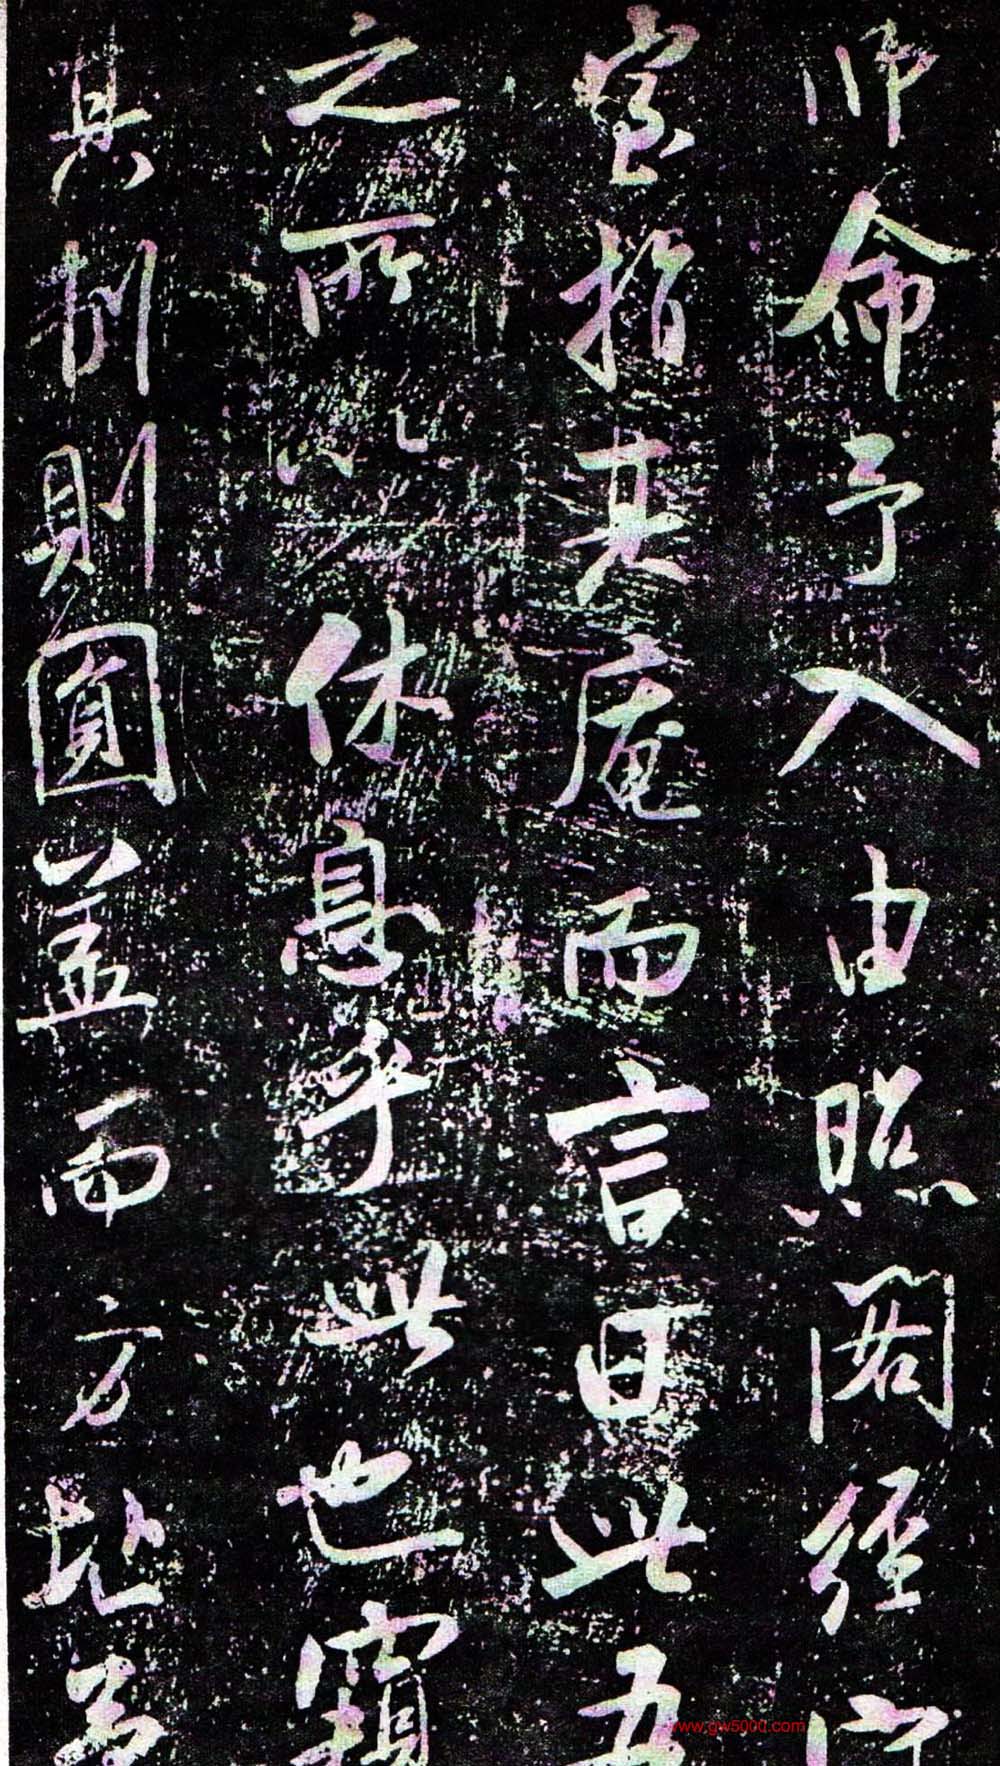 師命予入由照閣經
室指其庵而言曰此吾
之所以休息乎此也竊
其制則圓蓋而方址若
www.gw5000.com